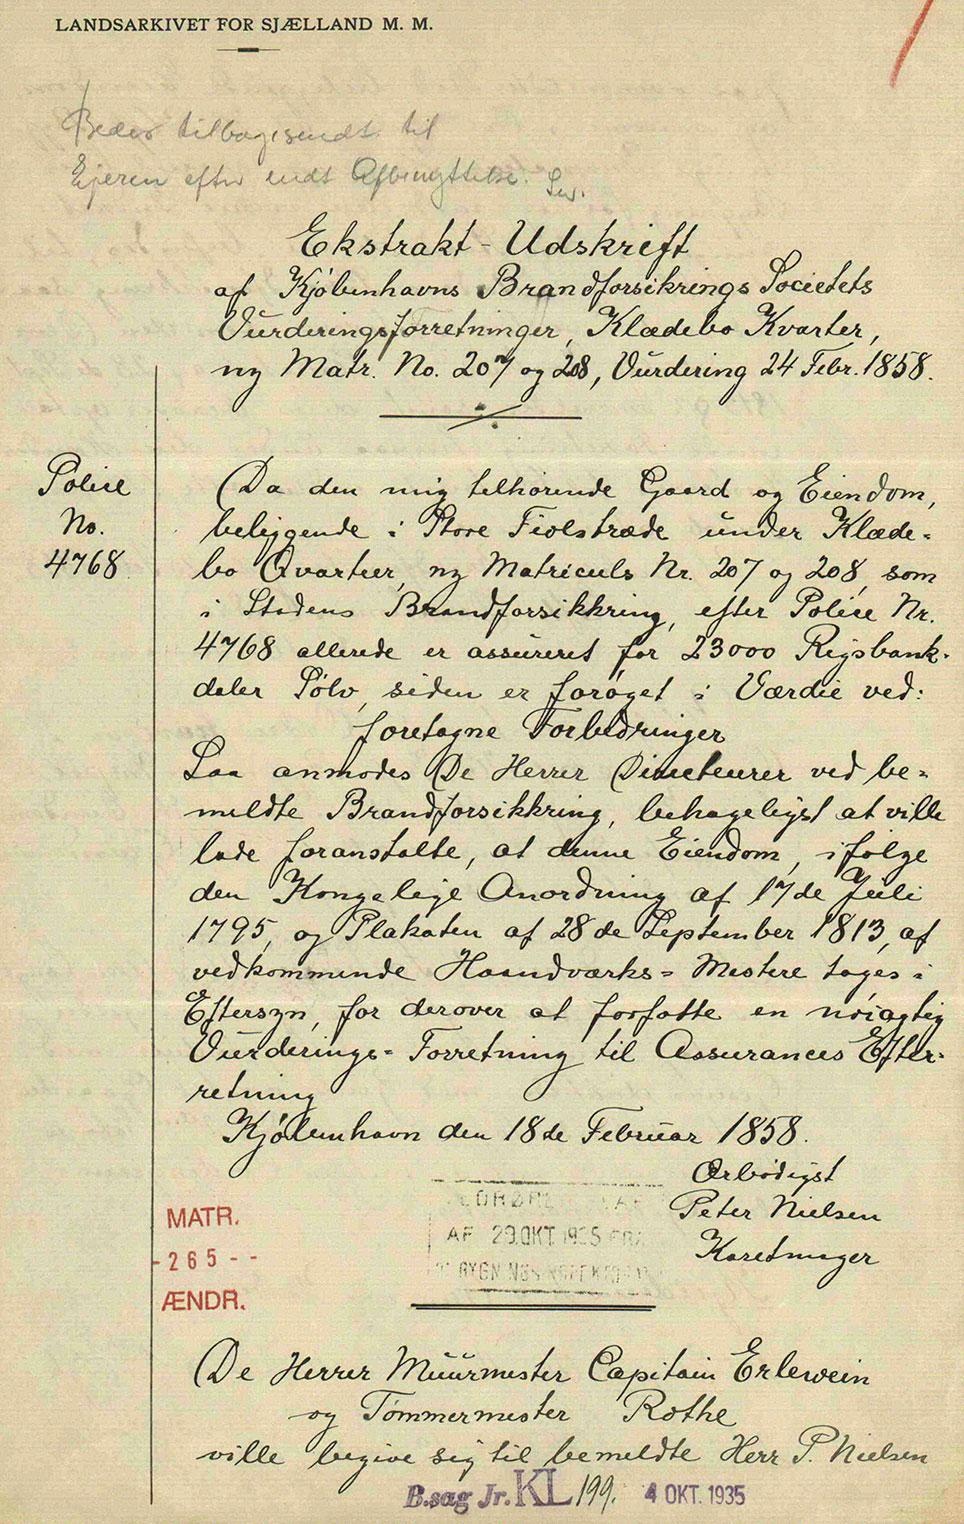 LANDSARKIVET FOR SJÆLLAND M. M.
Bedes tilbagesendt til
Ejeren efter endt Afbenyttelse.
Ekstrakt-Udskrift
af Kjøbenhavns Brandforsikrings Societets
Vurderingsforretninger, Klædebo Kvarter,
ny Matr. No. 207 og 208, Vurdering 24 Febr. 1858.
Police
No.
4768
Da den mig tilhørende Gaard og Eiendom,
beliggende i Store Fiolstræde under Klæde-
bo Qvarteer, ny Matriculs Nr. 207 og 208, som
i Stadens Brandforsikkring, efter Police Nr.
4768 allerede er assureret for 23000 Rigsbank-
daler Sølv, siden er forøget i Værdie ved:
foretagne Forbedringer
Saa anmodes De Herrer Directeurer ved be-
meldte Brandforsikkring, behageligst at ville
lade foranstalte, at denne Eiendom, ifølge
den Kongelige Anordning af 17de Juli
1795, og Plakaten af 28de September 1813, af
vedkommende Haandværks-Mestere tages i
Eftersyn, for derover at forfatte en nøiagtig
Vurderings-Forretning til Assurances Efter-
retning
Kjøbenhavn den 18de Februar 1858.
Ærbødigst
Peter Nielsen
Karetmager
AF 29. OKT. 1935 FRA
MATR.
-265--
ÆNDR.
De Herrer Muurmester Capitain Erlewein
og Tømmermester Rothe
ville begive sig til bemeldte Herr P. Nielsen
B.sag Jr. KL 199. 4 OKT. 1935